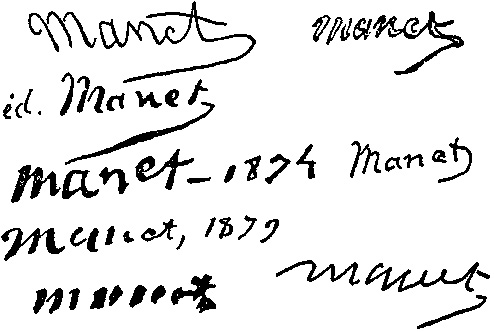 Manet manet
éd. Manet
manet - 1874 Manet
Manet, 1879
manet
manet